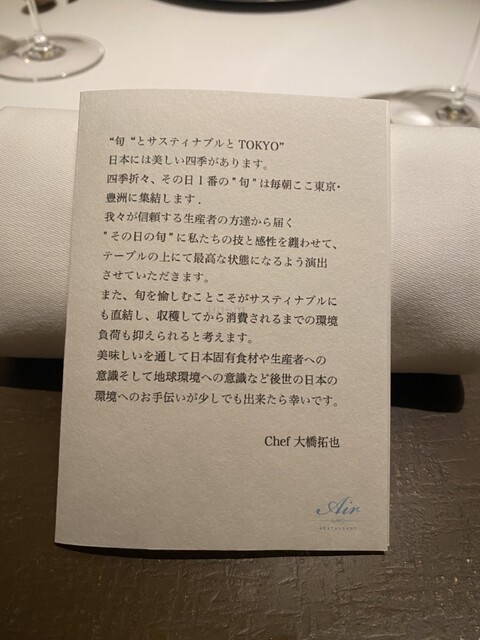 “旬 “とサスティナブルと TOKYO”
日本には美しい四季があります。
四季折々、その日１番の " 旬 " は毎朝ここ東京・
豊洲に集結します .
我々が信頼する生産者の方達から届く
" その日の旬 " に私たちの技と感性を纏わせて、
テーブルの上にて最高な状態になるよう演出
させていただきます。
また、旬を愉しむことこそがサスティナブルに
も直結し、収穫してから消費されるまでの環境
負荷も抑えられると考えます。
美味しいを通して日本固有食材や生産者への
意識そして地球環境への意識など後世の日本の
環境へのお手伝いが少しでも出来たら幸いです。
Chef 大橋拓也
Air
RESTAURANT